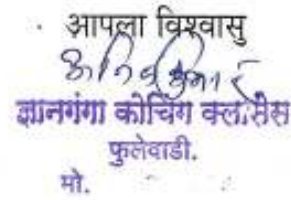 आपला विश्वासु
ज्ञानगंगा कोचिंग क्लासेस
फुलेवाडी.
मो.